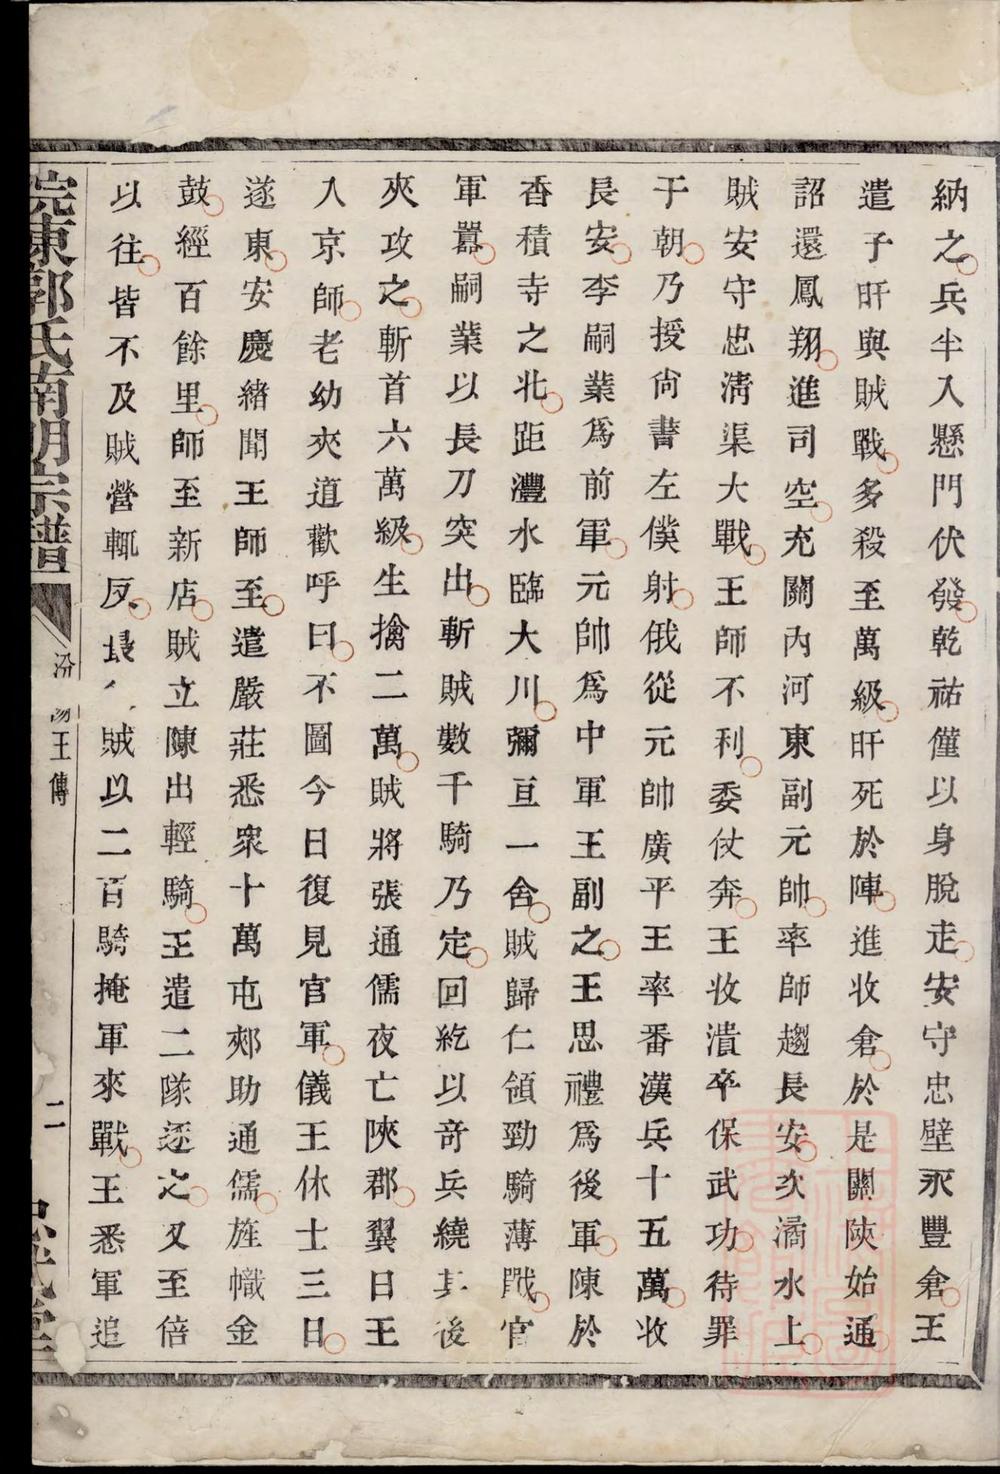 納之兵半入懸門伏發乾祐僅以身脫走安守忠壁永豐倉王
遣子旰與賊戰多殺至萬級旰死於陣進收倉於是關陝始通
詔還鳳翔進司空充關內河東副元帥率師趨長安次潏水上
賊安守忠清渠大戰王師不利委仗奔王收潰卒保武功待罪
于朝乃授尙書左僕射俄從元帥廣平王率番漢兵十五萬收
長安李嗣業爲前軍元帥爲中軍王副之王思禮爲後軍陳於
香積寺之北距灃水臨大川彌亘一舍賊歸仁領勁騎薄戰官
軍囂嗣業以長刀突出斬賊數千騎乃定回紇以奇兵繞其後
夾攻之斬首六萬級生擒二萬賊將張通儒夜亡陝郡翼日王
入京師老幼夾道歡呼曰不圖今日復見官軍儀王休士三日
遂東安慶緒聞王師至遣嚴莊悉衆十萬屯郟助通儒旌幟金
鼓經百餘里師至新店賊立陳出輕騎王遣二隊逐之又至倍
以往皆不及賊營輒反最賊以二百騎掩軍來戰王悉軍追
皖東郭氏南明宗譜
汾王傳
二
忠武堂